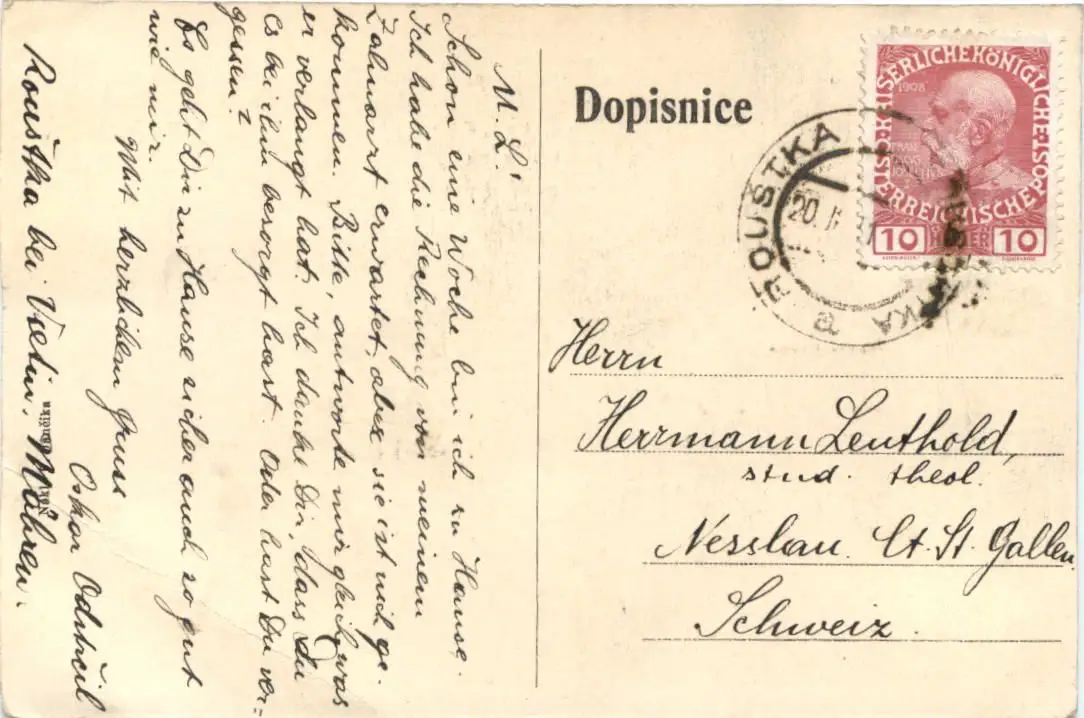 M. L.!
Schon eine Woche bin ich zu Hause.
Ich habe die Rechnung von meinem
Zahnarzt erwartet, aber sie ist nicht ge-
kommen. Bitte, antworte mir gleich was
er verlangt hat? Ich danke Dir, dass Du
es bei ihm besorgt hast. Oder hast Du ver=
gessen?
Es geht Dir zu Hause sicher auch so gut
wie mir.
Mit herzlichem Gruss
Oskar Odstrčil
Rouštka bei Vsetin. Mähren.
Dopisnice
KAISERLICHE KÖNIGLICHE ÖSTERREICHISCHE POST
1908
10 HELLER 10
ROUŠTKA
20
Herrn
Herrmann Leuthold,
stud. theol.
Nesslau. Ct. St. Gallen
Schweiz.